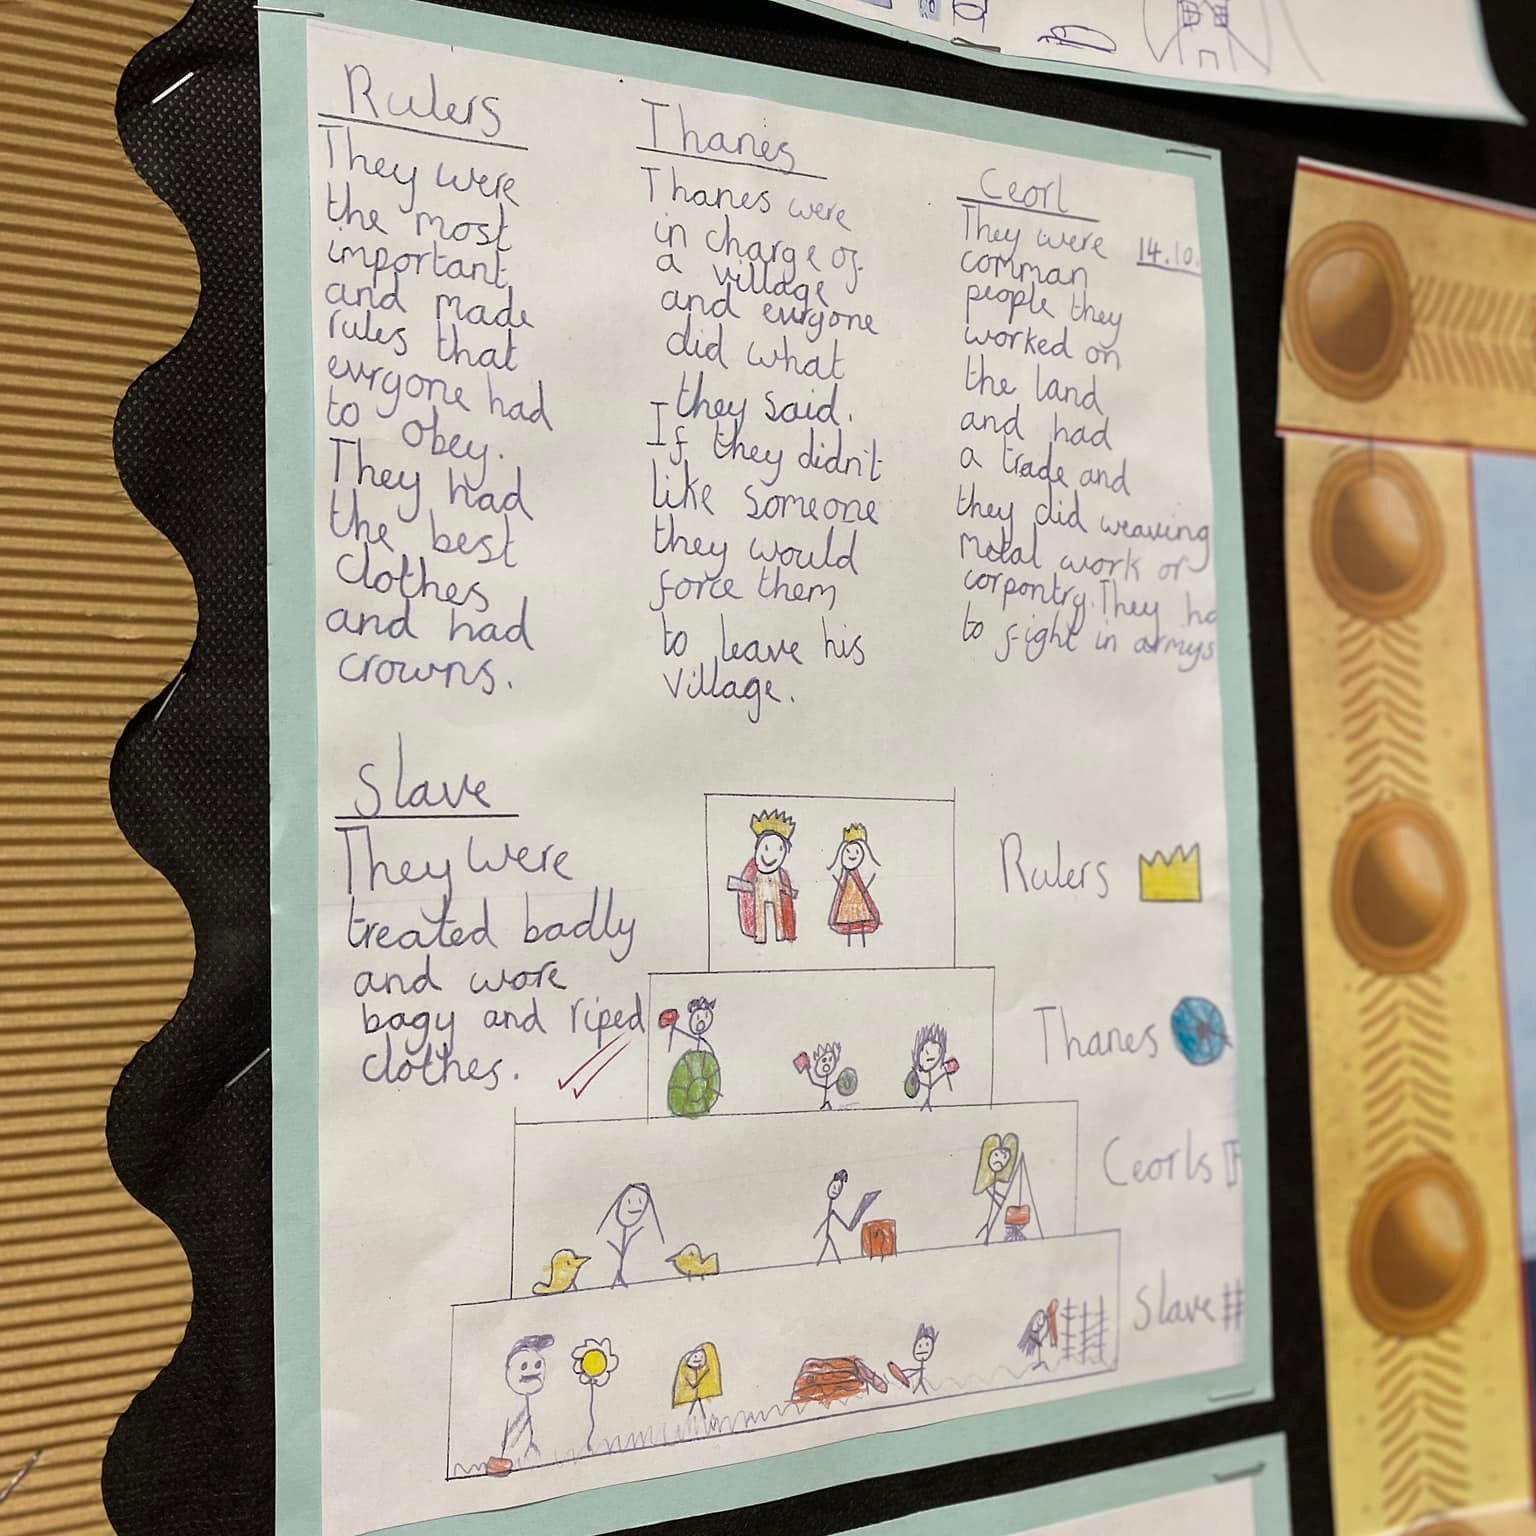 Rulers
They were
the most
important
and made
rules that
evrgone had
to obey.
They had
the best
clothes
and had
crowns.
Thanes
Thanes were
in charge of
a village
and evrgone
did what
they said.
If they didn't
like someone
they would
force them
to leave his
village.
Ceorl
14.10.
They were
comman
people they
worked on
the land
and had
a trade and
they did weaving
metal work or
corpontry. They ha
to fight in armys
Slave
They were
treated badly
and wore
bagy and riped
clothes.
Rulers
Thanes
Ceorls
Slave